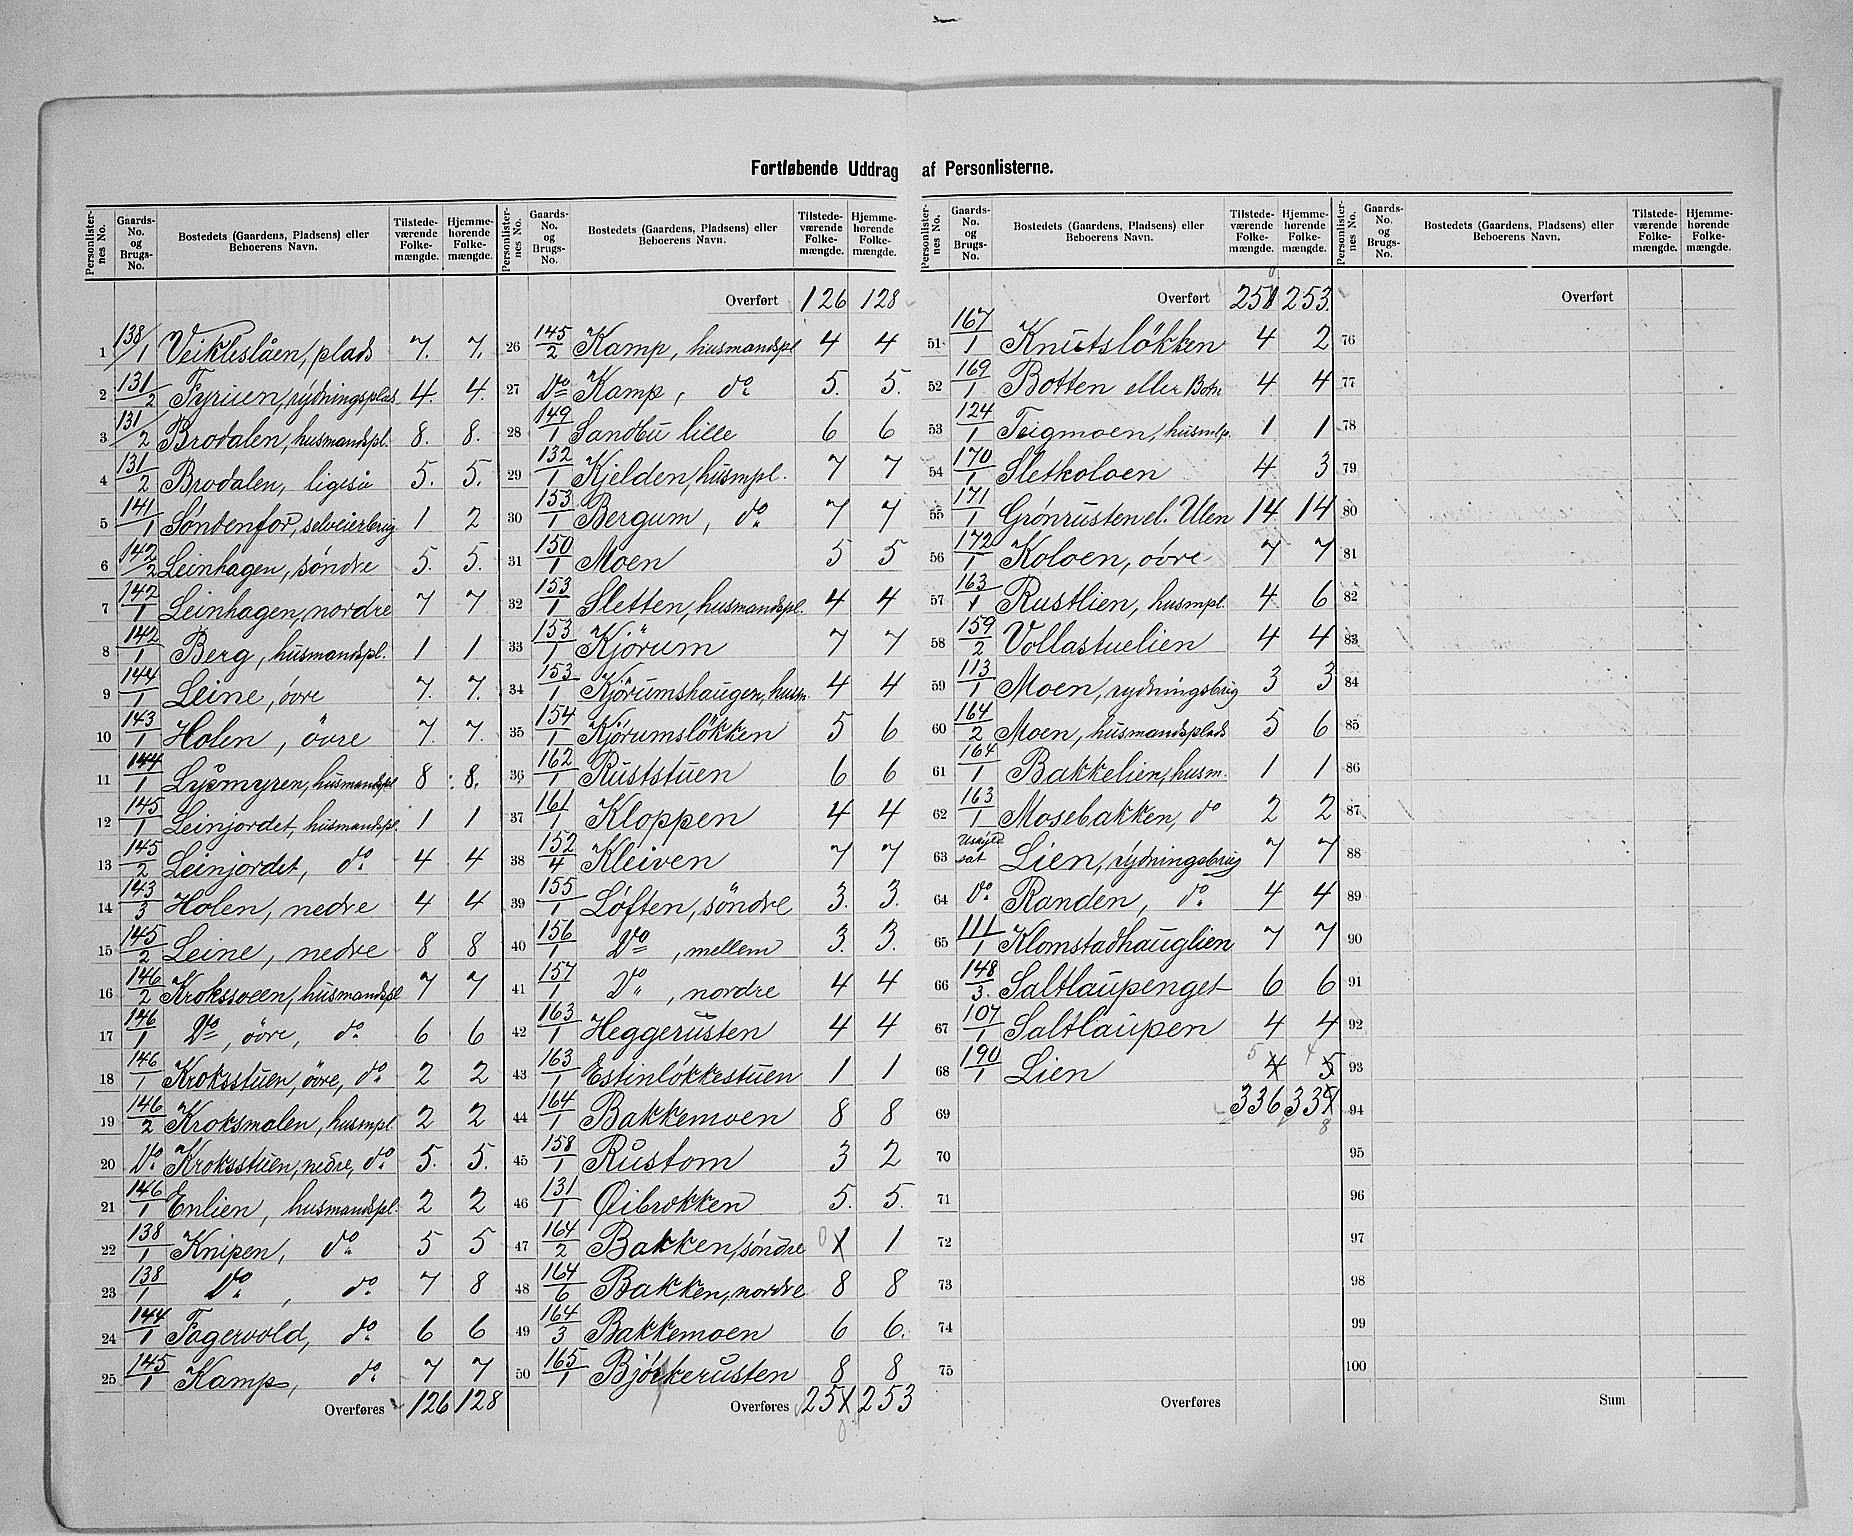 Fortløbende Uddrag af Personlisterne.
Personlister-nes No. | Gaards-No. og Brugs-No. | Bostedets (Gaardens, Pladsens) eller Beboerens Navn. | Tilstede-værende Folke-mængde. | Hjemme-hørende Folke-mængde.
1 138/1 Veikleslåen, plads 7. 7.
2 131/2 Fyruen, rydningsplas 4. 4.
3 131/2 Brodalen, husmandspl. 8. 8.
4 131/2 Brodalen, ligeså 5. 5.
5 141/1 Söndenfor, selveierbrug 1 2
6 142/2 Leinhagen, söndre 5. 5.
7 142/1 Leinhagen, nordre 7 7
8 142/1 Berg, husmandspl. 1 1
9 144/1 Leine, övre 7. 7.
10 143/1 Holen, övre 7. 7.
11 144/1 Lysmyren, husmandspl 8 8.
12 145/1 Leinjordet, husmandspl. 1 1
13 145/2 Leinjordet, do. 4 4
14 143/3 Holen, nedre 4 4
15 145/2 Leine, nedre 8 8
16 146/2 Kroksveen, husmandspl 7 7
17 146/1 Do, övre, do. 6 6
18 146/1 Kroksstuen, övre, do. 2 2
19 146/2 Kroksmalen, husmpl 2 2
20 Do. Kroksstuen, nedre, do. 5. 5.
21 146/1 Enlien, husmandspl. 2 2
22 138/1 Knipen, do. 5 5
23 138/1 Do, do. 7 8
24 144/1 Fagervold, do. 6 6
25 145/1 Kamp, do. 7 7
Overføres 126 128
Personlister-nes No. | Gaards-No. og Brugs-No. | Bostedets (Gaardens, Pladsens) eller Beboerens Navn. | Tilstede-værende Folke-mængde. | Hjemme-hørende Folke-mængde.
Overført 126 128
26 145/2 Kamp, husmandspl 4 4
27 Do Kamp, do. 5. 5.
28 149/1 Sandbu lille 6 6
29 132/1 Kjelden, husmpl. 7 7
30 153/1 Bergum, do. 7 7
31 150/1 Moen 5 5
32 153/1 Sletten, husmandspl. 4 4
33 153/1 Kjörum 7 7
34 153/1 Kjörumshaugen, husm. 4 4
35 154/1 Kjörumslökken 5 6
36 162/1 Ruststuen 6 6
37 161/1 Kloppen 4 4
38 152/4 Kleiven 7 7
39 155/1 Löften, söndre 3. 3.
40 156/1 Do, mellem 3. 3.
41 157/1 Do., nordre 4 4
42 163/1 Heggerusten 4 4
43 163/1 Estinlökkestuen 1 1
44 164/1 Bakkemoen 8 8
45 158/1 Rustom 3 2
46 131/1 Øibrokken 5. 5.
47 164/2 Bakken, söndre 0 1 1
48 164/6 Bakken, nordre 8 8
49 164/3 Bakkemoen 6 6.
50 165/1 Bjørkerusten 8 8
Overføres 251 253
0
Personlister-nes No. | Gaards-No. og Brugs-No. | Bostedets (Gaardens, Pladsens) eller Beboerens Navn. | Tilstede-værende Folke-mængde. | Hjemme-hørende Folke-mængde.
Overført 251 253.
51 167/1 Knutslökken 4 2
52 169/1 Botten eller Botn 4 4
53 124/1 Teigmoen, husmlp. 1 1
54 170/1 Sletkoloen 4 3
55 171/1 Grönrusten el. Ulen 14 14
56 172/1 Koloen, övre 7 7
57 163/1 Rustlien, husmpl. 4 6
58 159/2 Vollastuelien 4 4
59 113/1 Moen, rydningsbrug 3 3
60 164/2 Moen, husmandsplads 5 6
61 164/1 Bakkelien, husm. 1 1
62 163/1 Mosebakken, do 2 2
63 Uskyldsat Lien, rydningsbrug 7 7
64 do. Randen, do. 4 4
65 111/1 Klomstadhauglien 7 7
66 148/3. Saltlaupenget 6 6
67 107/1 Saltlaupen 4 4
68 190/1 Lien 5 4 4 5
69 336 339
8
70
71
72
73
74
75
Overføres
Personlister-nes No. | Gaards-No. og Brugs-No. | Bostedets (Gaardens, Pladsens) eller Beboerens Navn. | Tilstede-værende Folke-mængde. | Hjemme-hørende Folke-mængde.
Overført
76
77
78
79
80
81
82
83
84
85
86
87
88
89
90
91
92
93
94
95
96
97
98
99
100
Sum